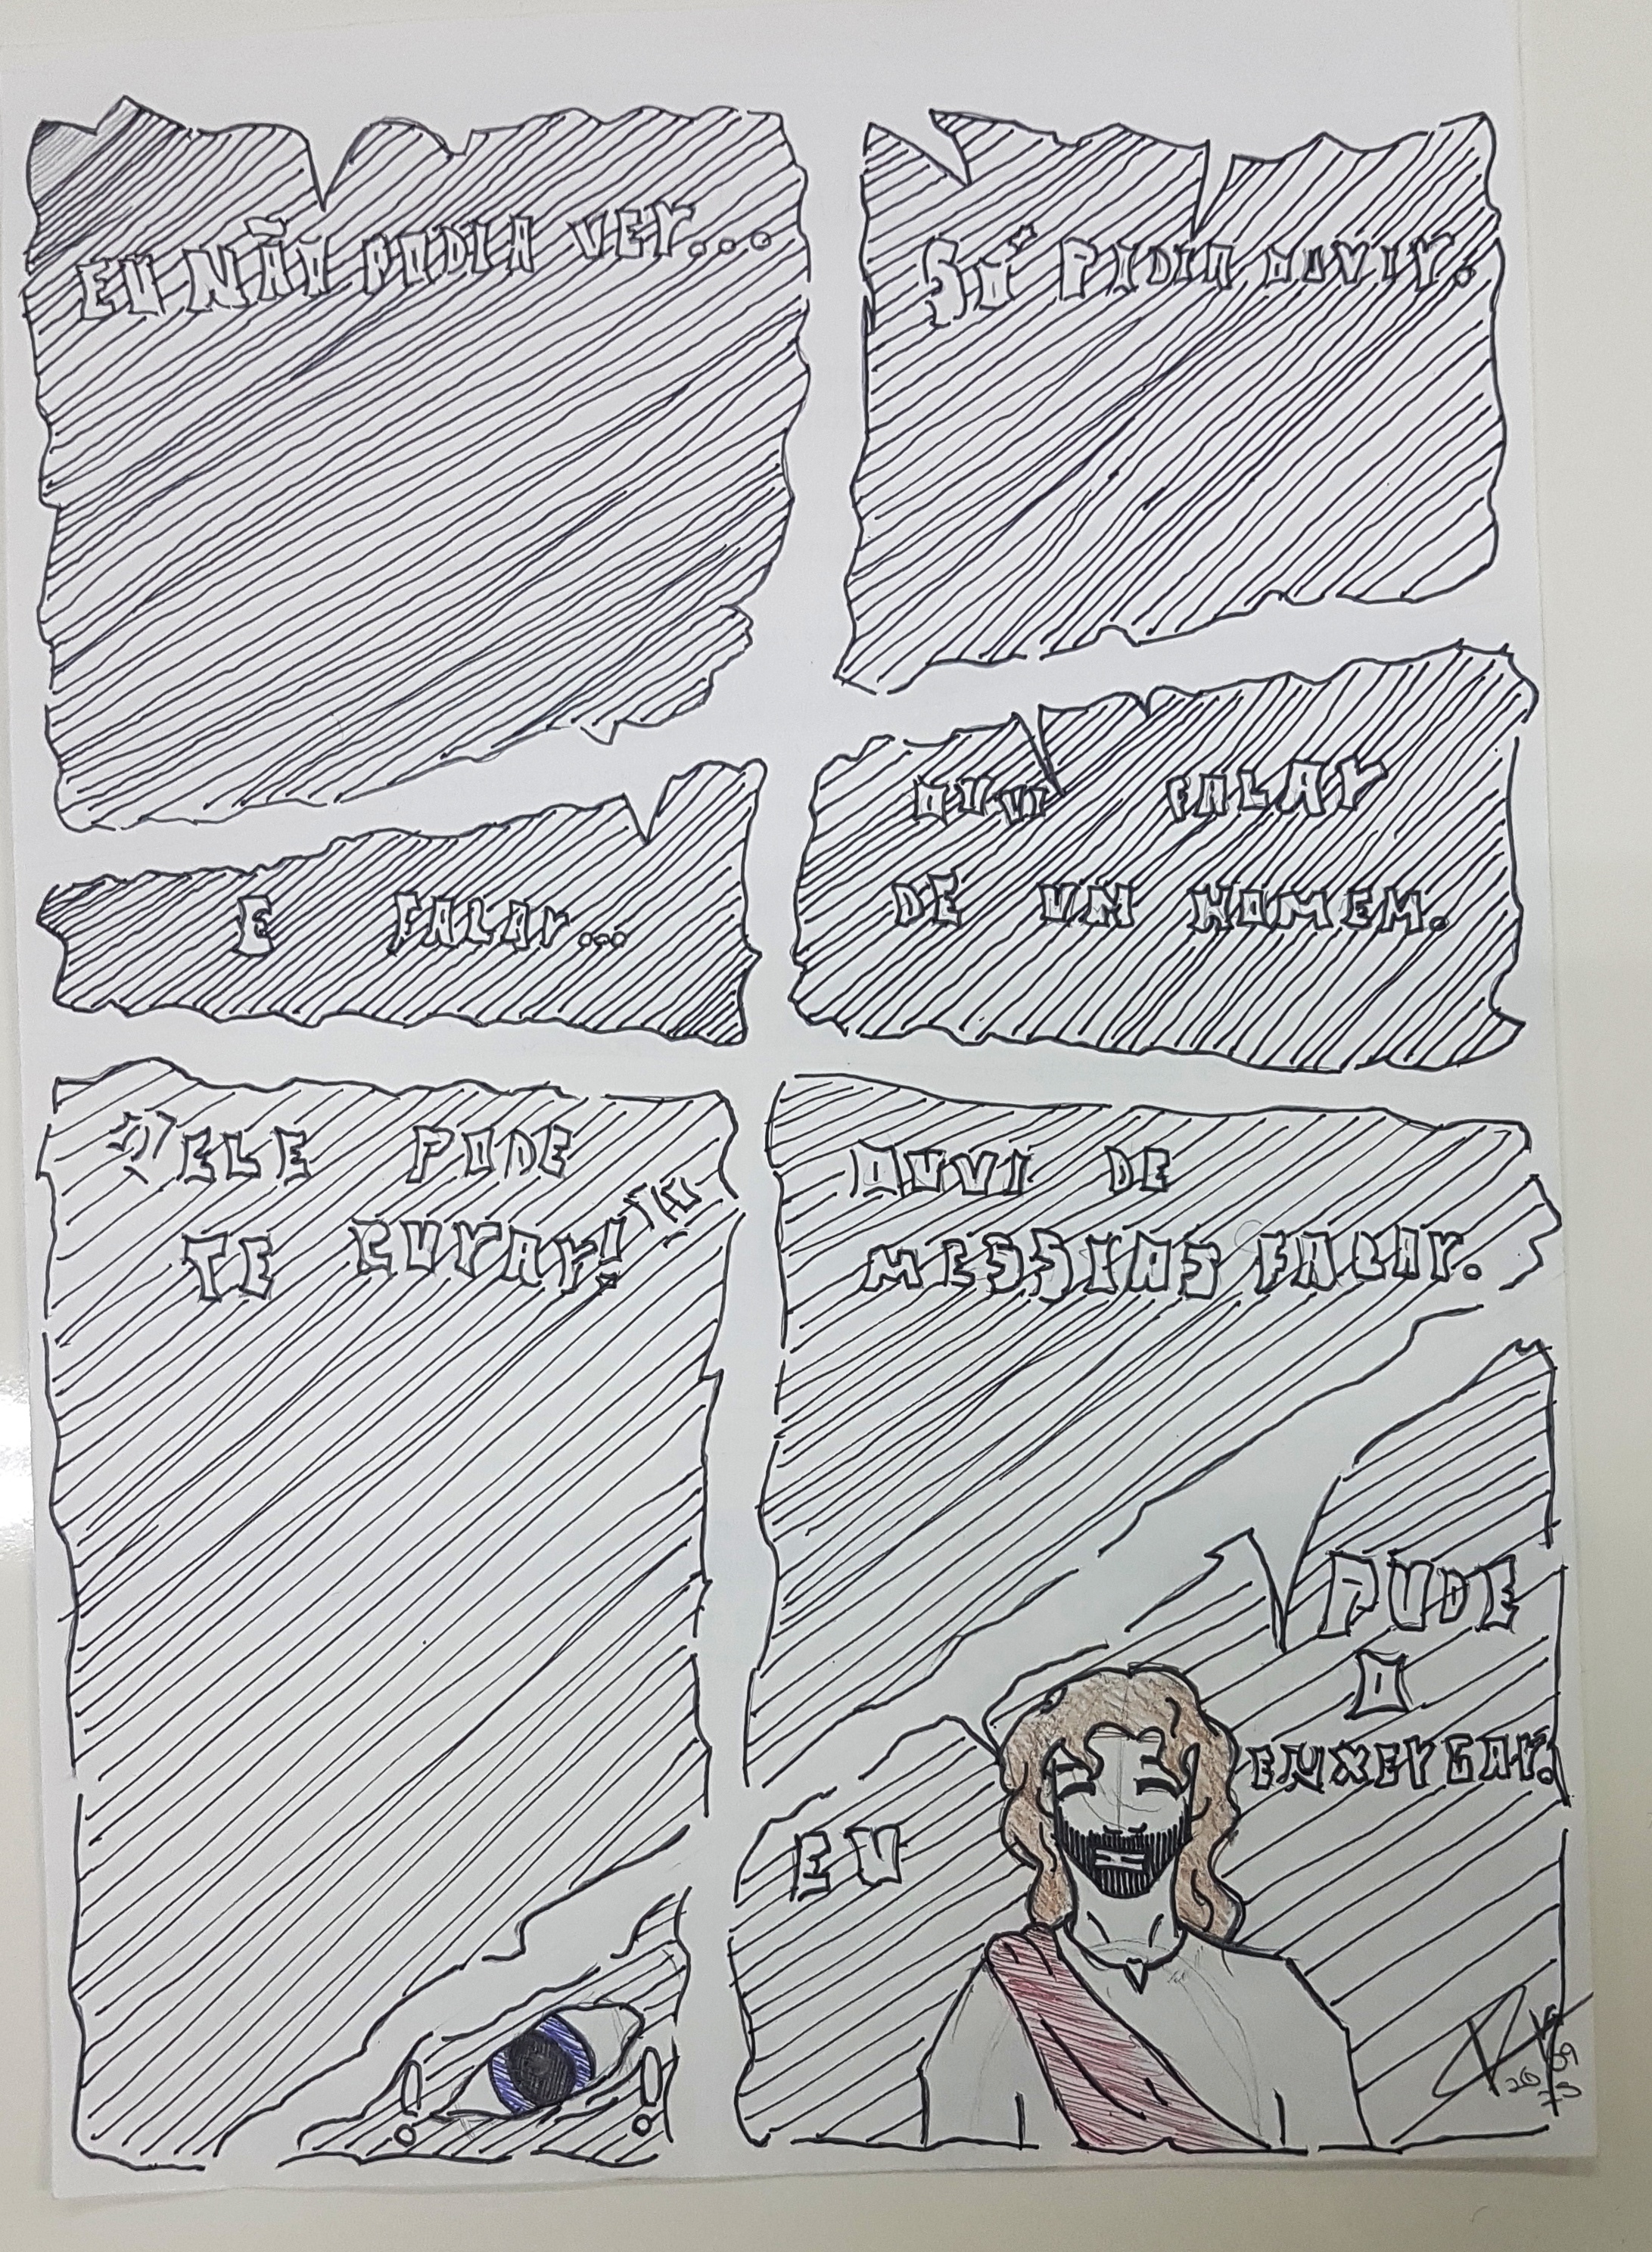 EU NÃO PODIA VER...
SÓ PODIA OUVIR.
E FALAR...
OUVI FALAR
DE UM HOMEM.
"ELE PODE
TE CURAR!"
OUVI DE
MESSIAS FALAR.
EU
PUDE
O
ENXERGAR.